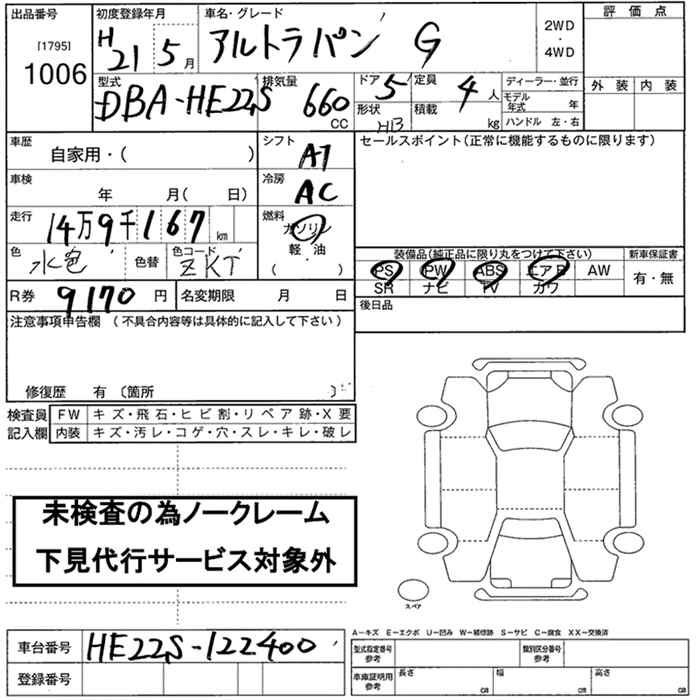 出品番号 [1795] 1006
初度登録年月 H21 5月
車名・グレード アルトラパン G
2WD・4WD
評価点
外装 内装
型式 DBA-HE22S
排気量 660 CC
ドア 5
形状 HB
定員 4人
積載 kg
ディーラー・並行
モデル年式 年
ハンドル 左・右
車歴 自家用・( )
シフト AT
セールスポイント(正常に機能するものに限ります)
車検 年 月( 日)
冷房 AC
走行 14万9千167km
燃料 ガソリン 軽・油 ( ・ )
色 水色
色替
色コード ZKT
装備品(純正品に限り丸をつけて下さい)
新車保証書
PS PW ABS エアB AW 有・無
SR ナビ TV カワ
R券 9170円
名変期限 月 日
後日品
注意事項申告欄 (不具合内容等は具体的に記入して下さい)
修復歴 有 〔箇所 〕
検査員記入欄
FW キズ・飛石・ヒビ割・リペア跡・X要
内装 キズ・汚レ・コゲ・穴・スレ・キレ・破レ
未検査の為ノークレーム
下見代行サービス対象外
スペア
A-キズ E-エクボ U-凹み W-補修跡 S-サビ C-腐食 XX-交換済
車台番号 HE22S-122400
登録番号
型式指定番号 参考
類別区分番号 参考
車庫証明用 参考
長さ cm 幅 cm 高さ cm